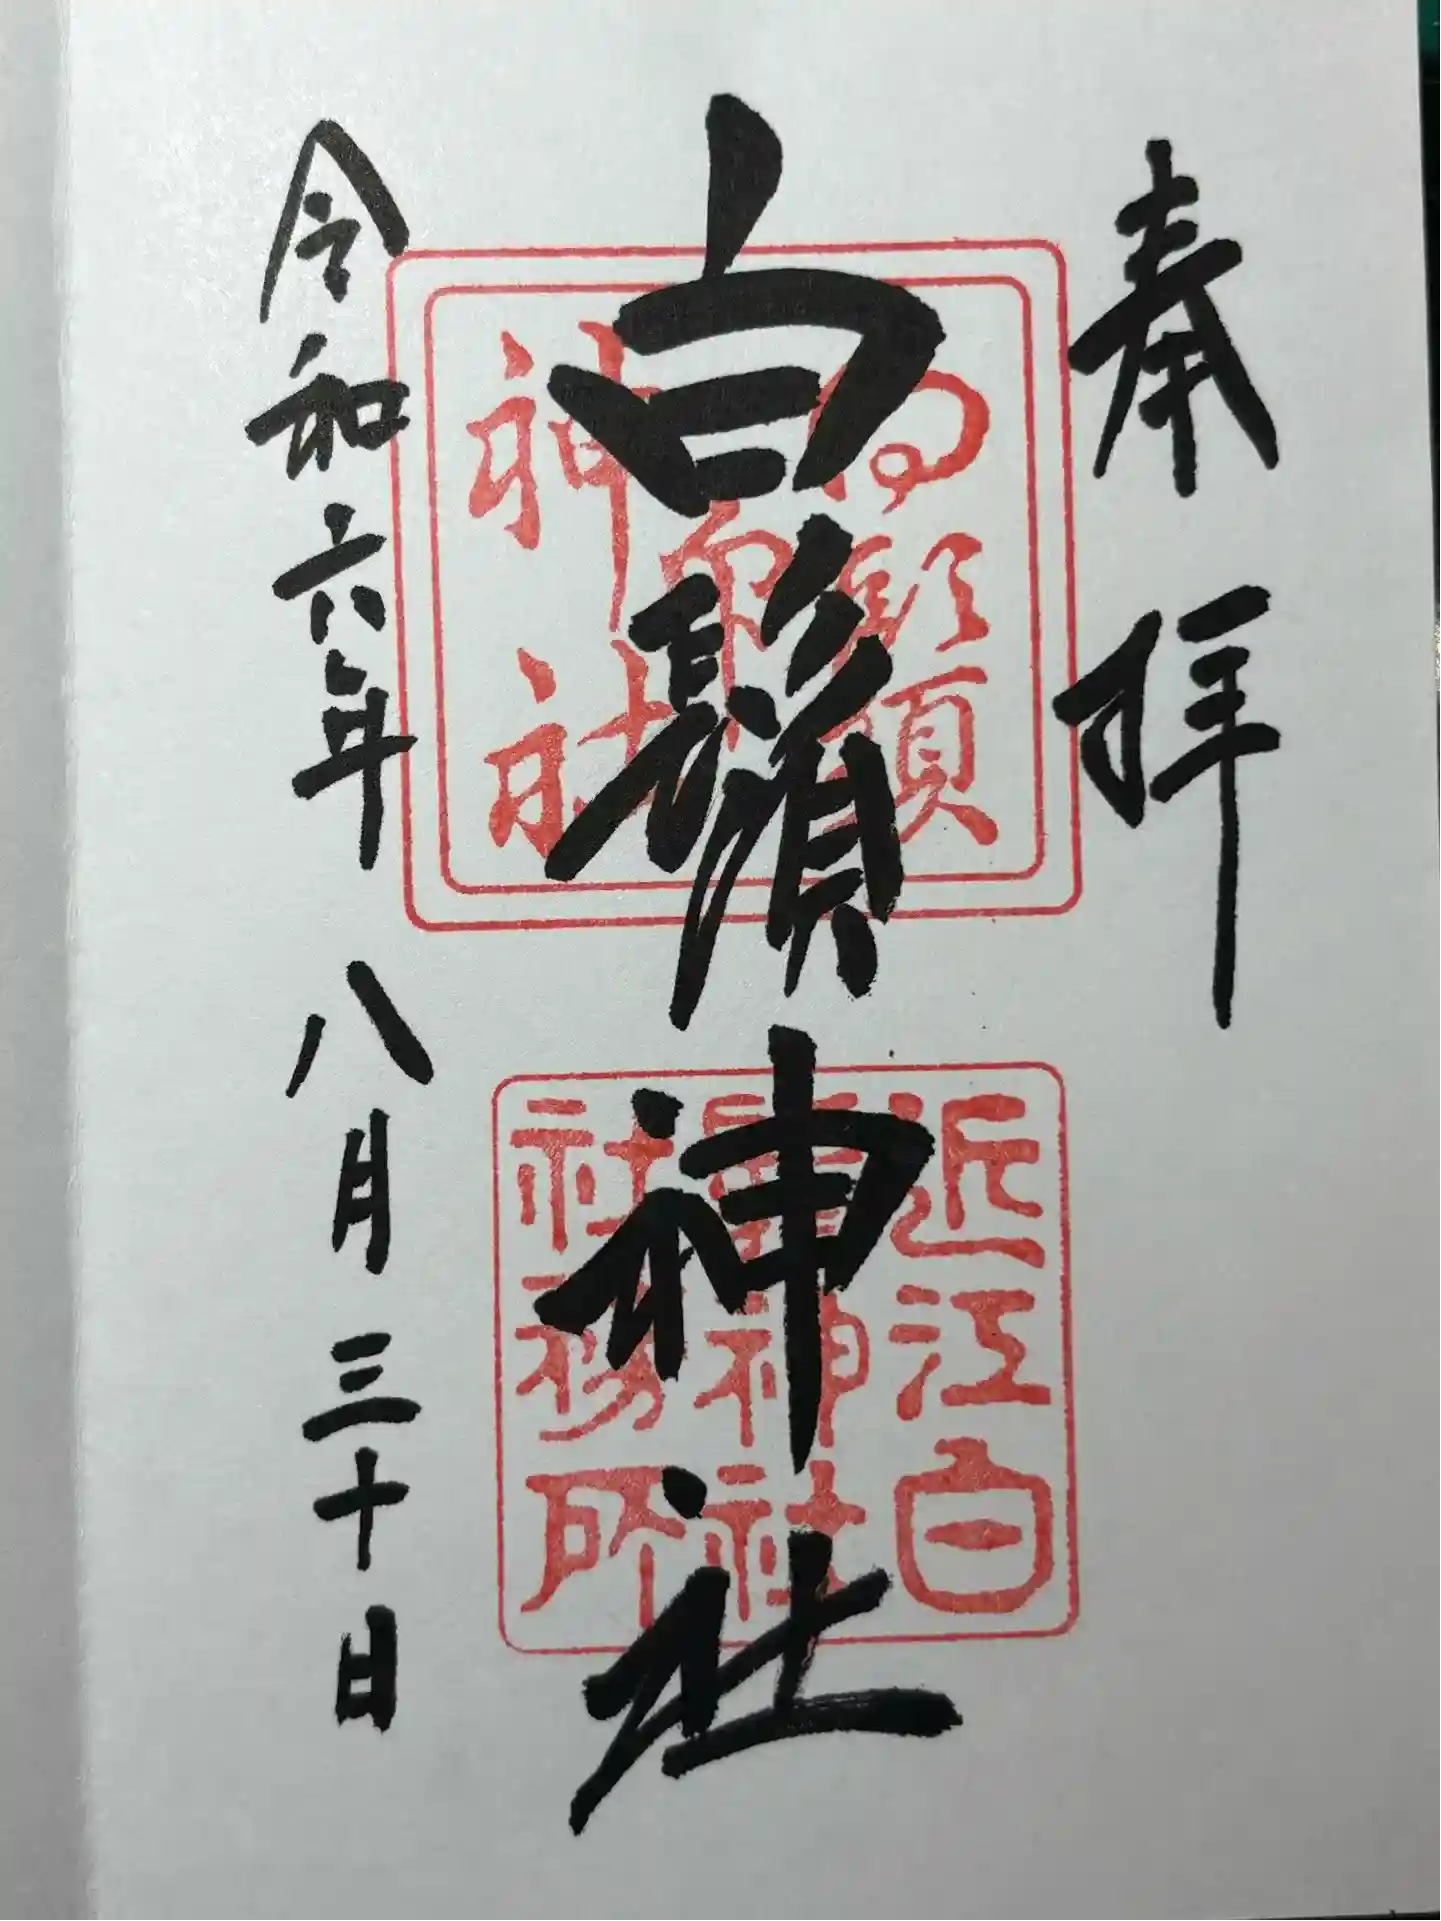 奉拝
白鬚神社
近江白
鬚神社
社務所
令和六年八月三十日